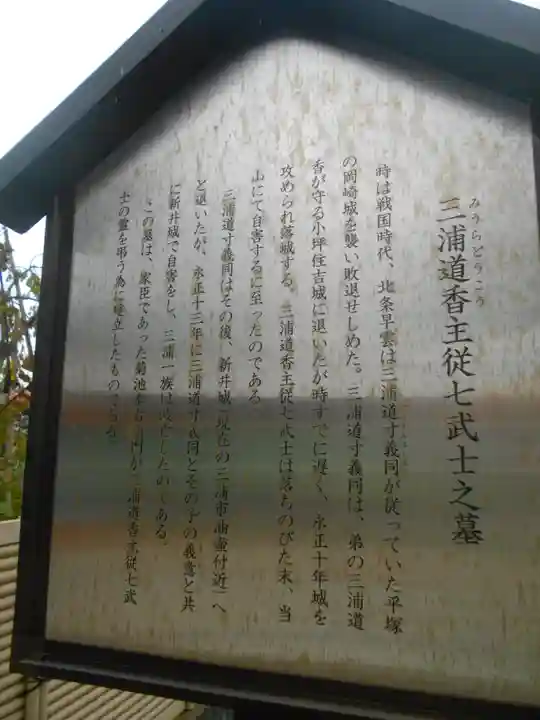 みうらどうこう
三浦道香主従七武士之墓
時は戦国時代、北条早雲は三浦道寸義同が従っていた平塚
の岡崎城を襲い敗退せしめた。三浦道寸義同は、弟の三浦道
香が守る小坪住吉城に退いたが時すでに遅く、永正十年城を
攻められ落城する。三浦道香主従七武士は落ちのびた末、当
山にて自害するに至ったのである。
三浦道寸義同はその後、新井城（現在の三浦市油壷付近）へ
と退いたが、永正十三年に三浦道寸義同とその子の義意と共
に新井城で自害をし、三浦一族は滅亡したのである。
この墓は、家臣であった菊池が三浦道香主従七武
士の霊を弔う為に建立したものである。